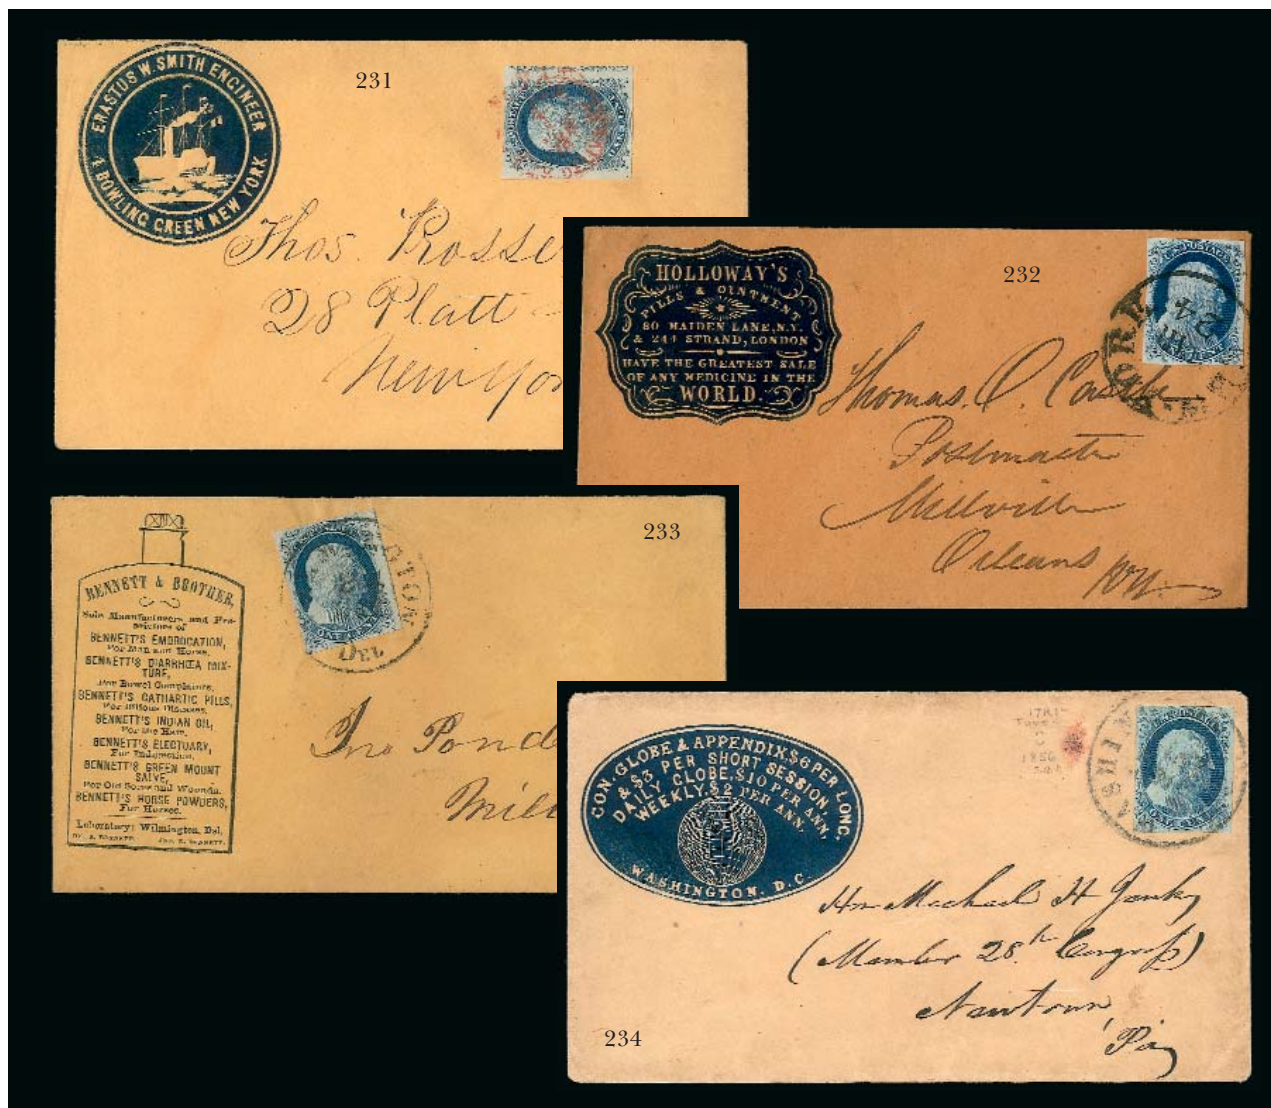 ERASTUS W. SMITH ENGINEER
4 BOWLING GREEN NEW YORK
231
Thos. Rosse
28 Platt
New Yor
HOLLOWAY'S
PILLS & OINTMENT
80 MAIDEN LANE, N.Y.
& 244 STRAND, LONDON
HAVE THE GREATEST SALE
OF ANY MEDICINE IN THE
WORLD.
232
U.S. POSTAGE
ONE CENT
24
ORK
Thomas. O. Castle
Postmaster
Millville
Orleans
N.Y.
BENNETT & BROTHER,
Sole Manufacturers and Pro-
prietors of
BENNETT'S EMBROCATION,
For Man and Horse.
BENNETT'S DIARRHŒA MIX-
TURE,
For Bowel Complaints.
BENNETT'S CATHARTIC PILLS,
For Bilious Diseases.
BENNETT'S INDIAN OIL,
For the Hair.
BENNETT'S ELECTUARY,
For Indigestion.
BENNETT'S GREEN MOUNT
SALVE,
For Old Sores and Wounds.
BENNETT'S HORSE POWDERS,
For Horses.
Laboratory: Wilmington, Del.
233
ONE CENT
GTON
DEL
Jno Pond
Mil
CON. GLOBE & APPENDIX, $6 PER LONG,
& $3 PER SHORT SESSION,
DAILY GLOBE, $10 PER ANN,
WEEKLY, $2 PER ANN,
WASHINGTON. D.C.
1856
ASHIN
ONE CENT
Hon Michael H Jenks
(Member 28th Congress)
Newtown,
Pa
234